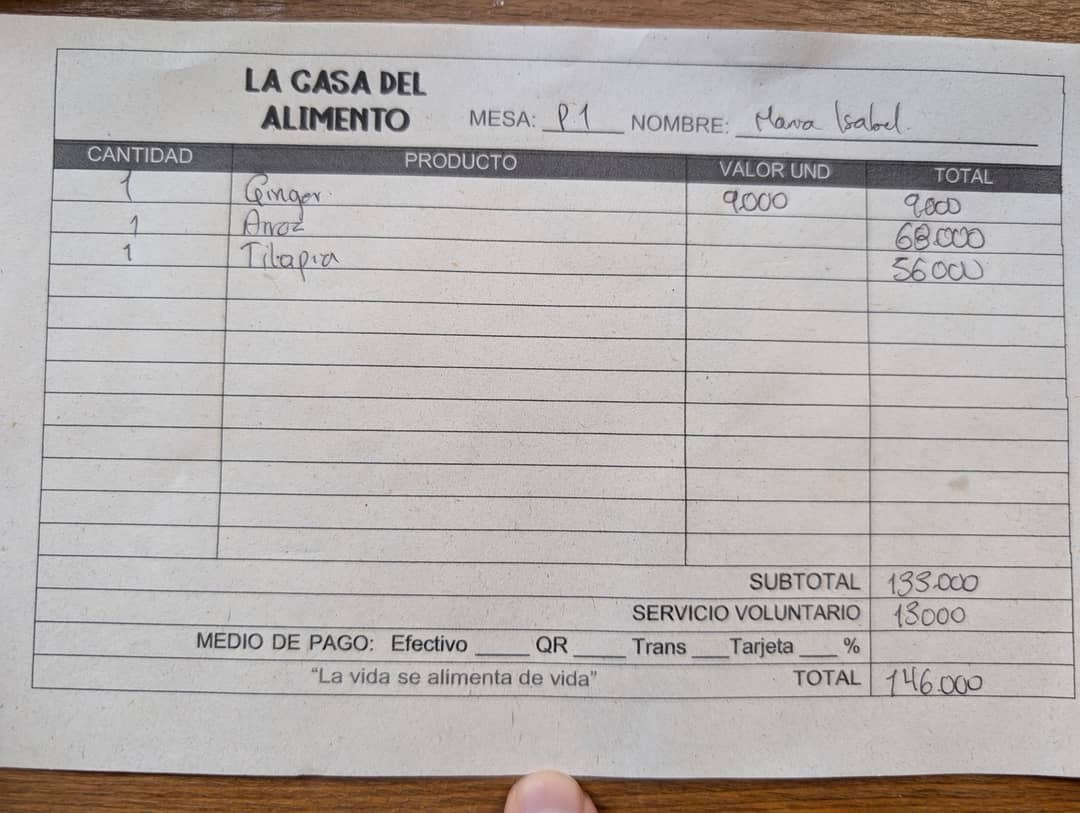 LA CASA DEL
ALIMENTO
MESA: P.1 NOMBRE: Maria Isabel.
CANTIDAD PRODUCTO VALOR UND TOTAL
1 Ginger. 9000 9000
1 Arroz 68.000
1 Tilapia 56000
SUBTOTAL 133.000
SERVICIO VOLUNTARIO 13000
MEDIO DE PAGO: Efectivo ____ QR ____ Trans ____ Tarjeta ____ %
“La vida se alimenta de vida” TOTAL 146.000